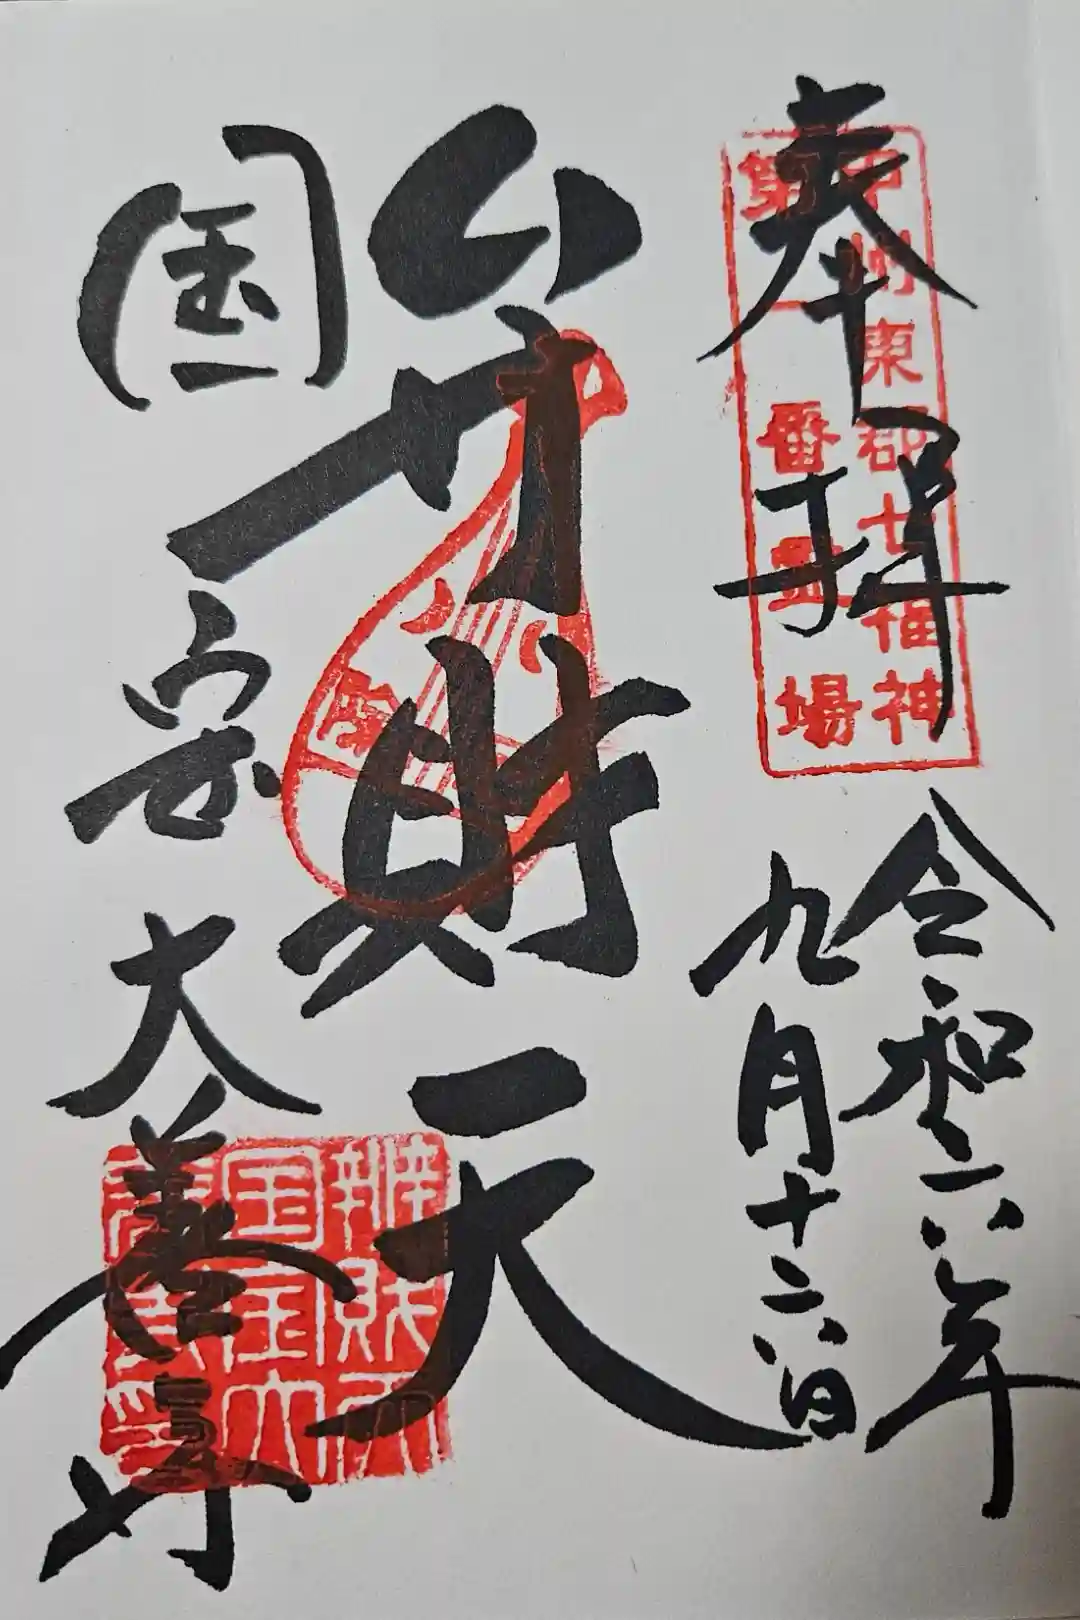 奉拝
甲州東郡七福神
第一番霊場
令和六年
九月十六日
弁財天
国宝大善寺
辨財天
国宝大
善寺印